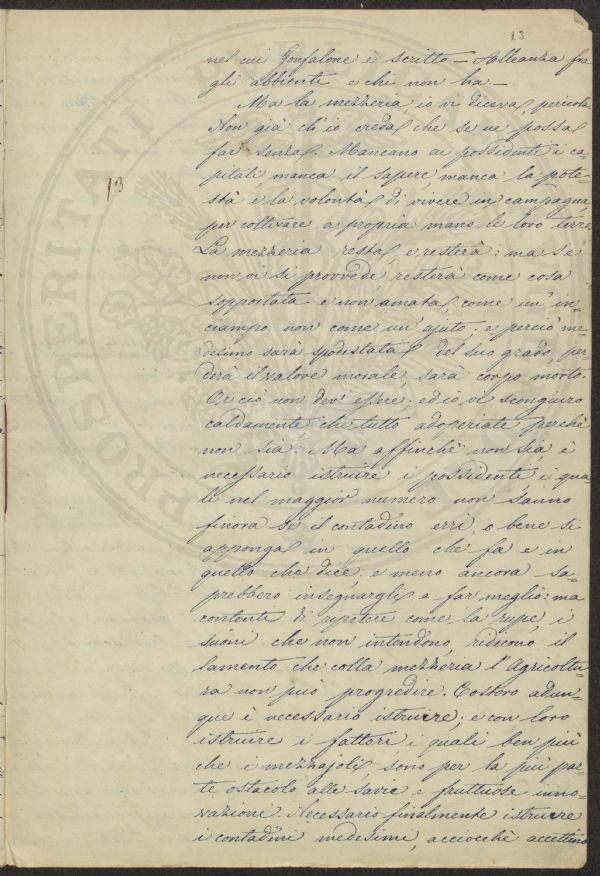 13
nel cui Gonfalone è scritto — Alleanza fra
gli abbienti e chi non ha —
Ma la mezzeria io vi diceva, pericola.
Non già ch'io creda che se ne possa
far senza. Mancano ai possidenti i ca=
pitali, manca il sapere, manca la pote=
stà e la volontà di vivere in campagna
13
per coltivare a propria mano le loro terre.
La mezzeria resta, e resterà: ma se
non vi si provvede, resterà come cosa
sopportata e non amata, come un in=
ciampo non come un ajuto; e perciò me=
desimo sarà spodestata del suo grado, per=
derà il valore morale, sarà corpo morto.
Or ciò non dev' essere; ed io vi scongiuro
caldamente, che tutto adoperiate perchè
non sia. Ma affinchè non sia è
necessario istruire i possidenti i qua=
li nel maggior numero non sanno
finora se il contadino erri, o bene si
apponga in quello che fa e in
quello che dice, e meno ancora sa=
prebbero insegnargli a far meglio: ma
contenti di ripetere come la rupe, i
suoni che non intendono, ridicono il
lamento che colla mezzeria l'Agricoltu=
ra non può progredire. Costoro adun=
que è necessario istruire; e con loro
istruire i fattori i quali ben più
che i mezzajoli, sono per la più par=
te ostacolo alle savie e fruttuose inno=
vazioni. Necessario finalmente istruire
i contadini medesimi, acciocchè accettino
PROSPERITATI